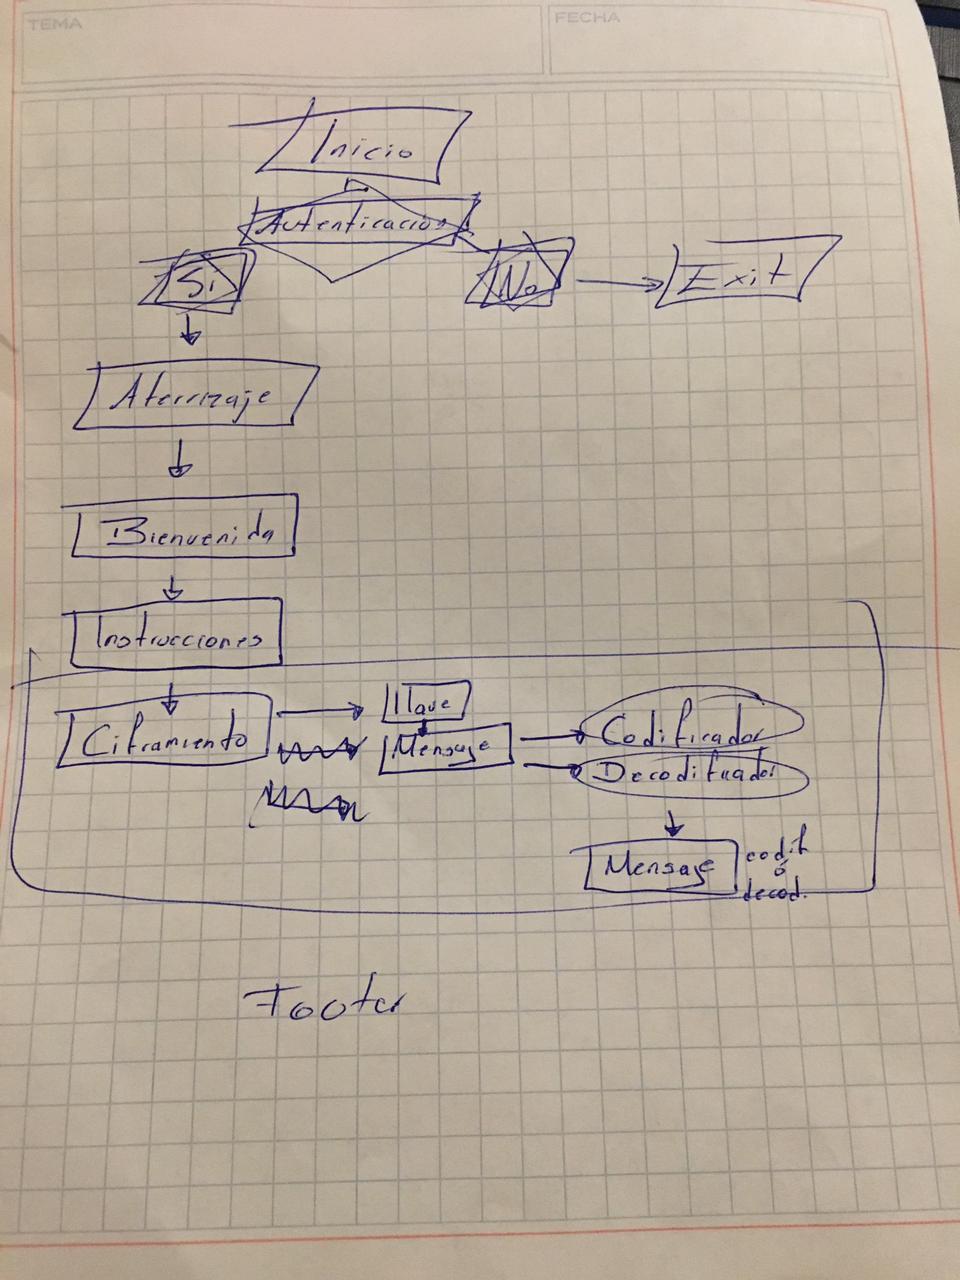 TEMA
FECHA
Inicio
Autenticación
Si
No
Exit
Aterrizaje
Bienvenida
Instrucciones
Ciframiento
Llave
Mensaje
Codificador
Decodificador
Mensaje
codif
ó
decod.
Footer